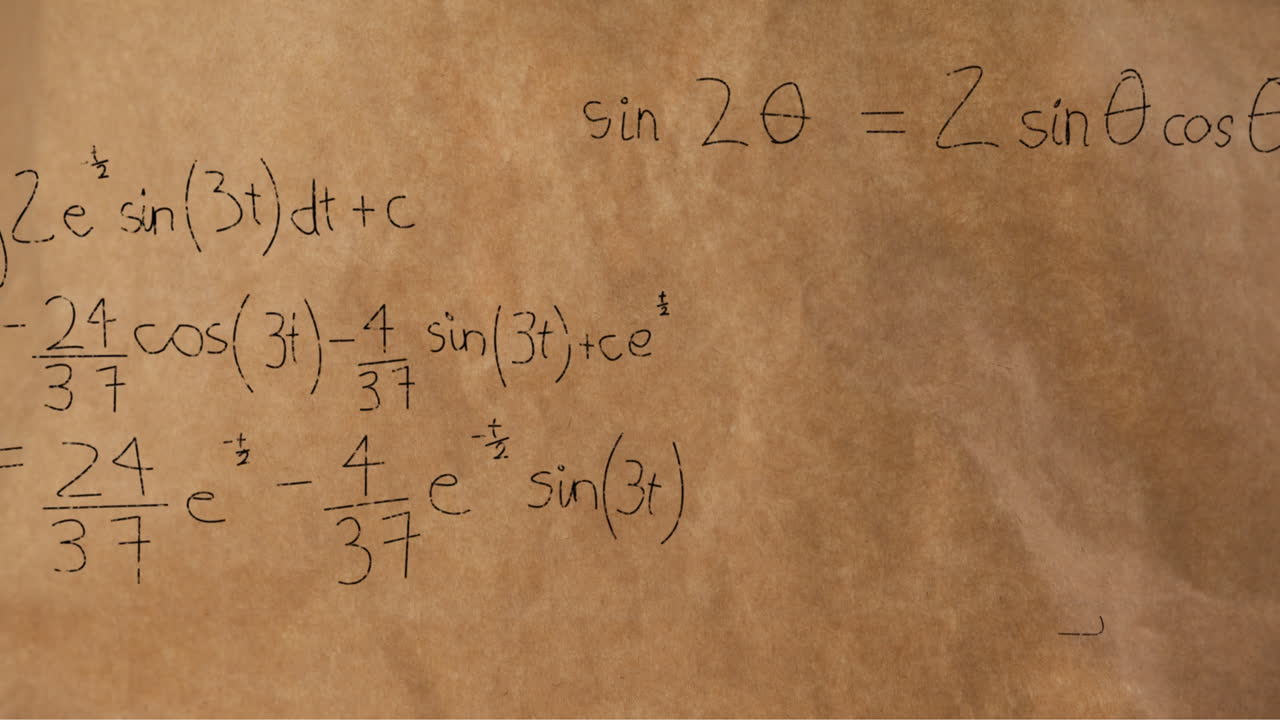 sin 2θ = 2 sinθ cosθ
∫2e^(t/2) sin(3t)dt+c
-24/37 cos(3t)-4/37 sin(3t)+ce^(t/2)
=24/37 e^(-t/2) -4/37 e^(-t/2) sin(3t)